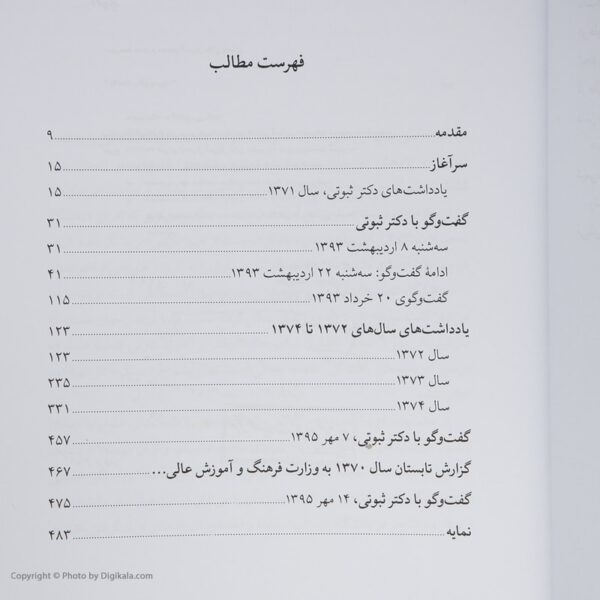 فهرست مطالب
مقدمه ........ ۹
سرآغاز ........ ۱۵
یادداشت‌های دکتر ثبوتی، سال ۱۳۷۱ ........ ۱۵
گفت‌وگو با دکتر ثبوتی ........ ۳۱
سه‌شنبه ۸ اردیبهشت ۱۳۹۳ ........ ۳۱
ادامهٔ گفت‌وگو: سه‌شنبه ۲۲ اردیبهشت ۱۳۹۳ ........ ۴۱
گفت‌وگوی ۲۰ خرداد ۱۳۹۳ ........ ۱۱۵
یادداشت‌های سال‌های ۱۳۷۲ تا ۱۳۷۴ ........ ۱۲۳
سال ۱۳۷۲ ........ ۱۲۳
سال ۱۳۷۳ ........ ۲۳۵
سال ۱۳۷۴ ........ ۳۳۱
گفت‌وگو با دکتر ثبوتی، ۷ مهر ۱۳۹۵ ........ ۴۵۷
گزارش تابستان سال ۱۳۷۰ به وزارت فرهنگ و آموزش عالی... ........ ۴۶۷
گفت‌وگو با دکتر ثبوتی، ۱۴ مهر ۱۳۹۵ ........ ۴۷۵
نمایه ........ ۴۸۳
Copyright © Photo by Digikala.com